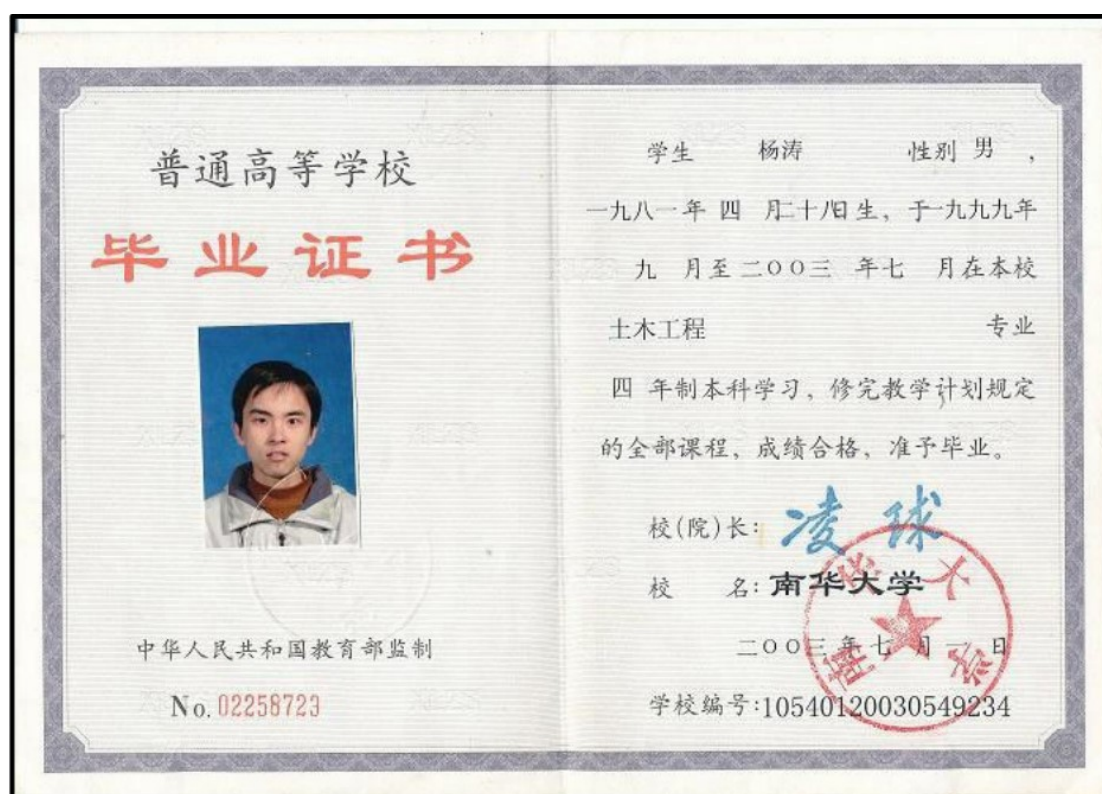 普通高等学校
毕业证书
中华人民共和国教育部监制
No. 02258723
学生 杨涛 性别 男 ,
一九八一年 四 月二十八日生、于一九九九年
九 月至二〇〇三 年七 月在本校
土木工程 专业
四 年制本科学习、修完教学计划规定
的全部课程、成绩合格、准予毕业。
校(院)长: 凌球
校 名: 南华大学
二〇〇三年七月一日
学校编号:10540120030549234
南华大学